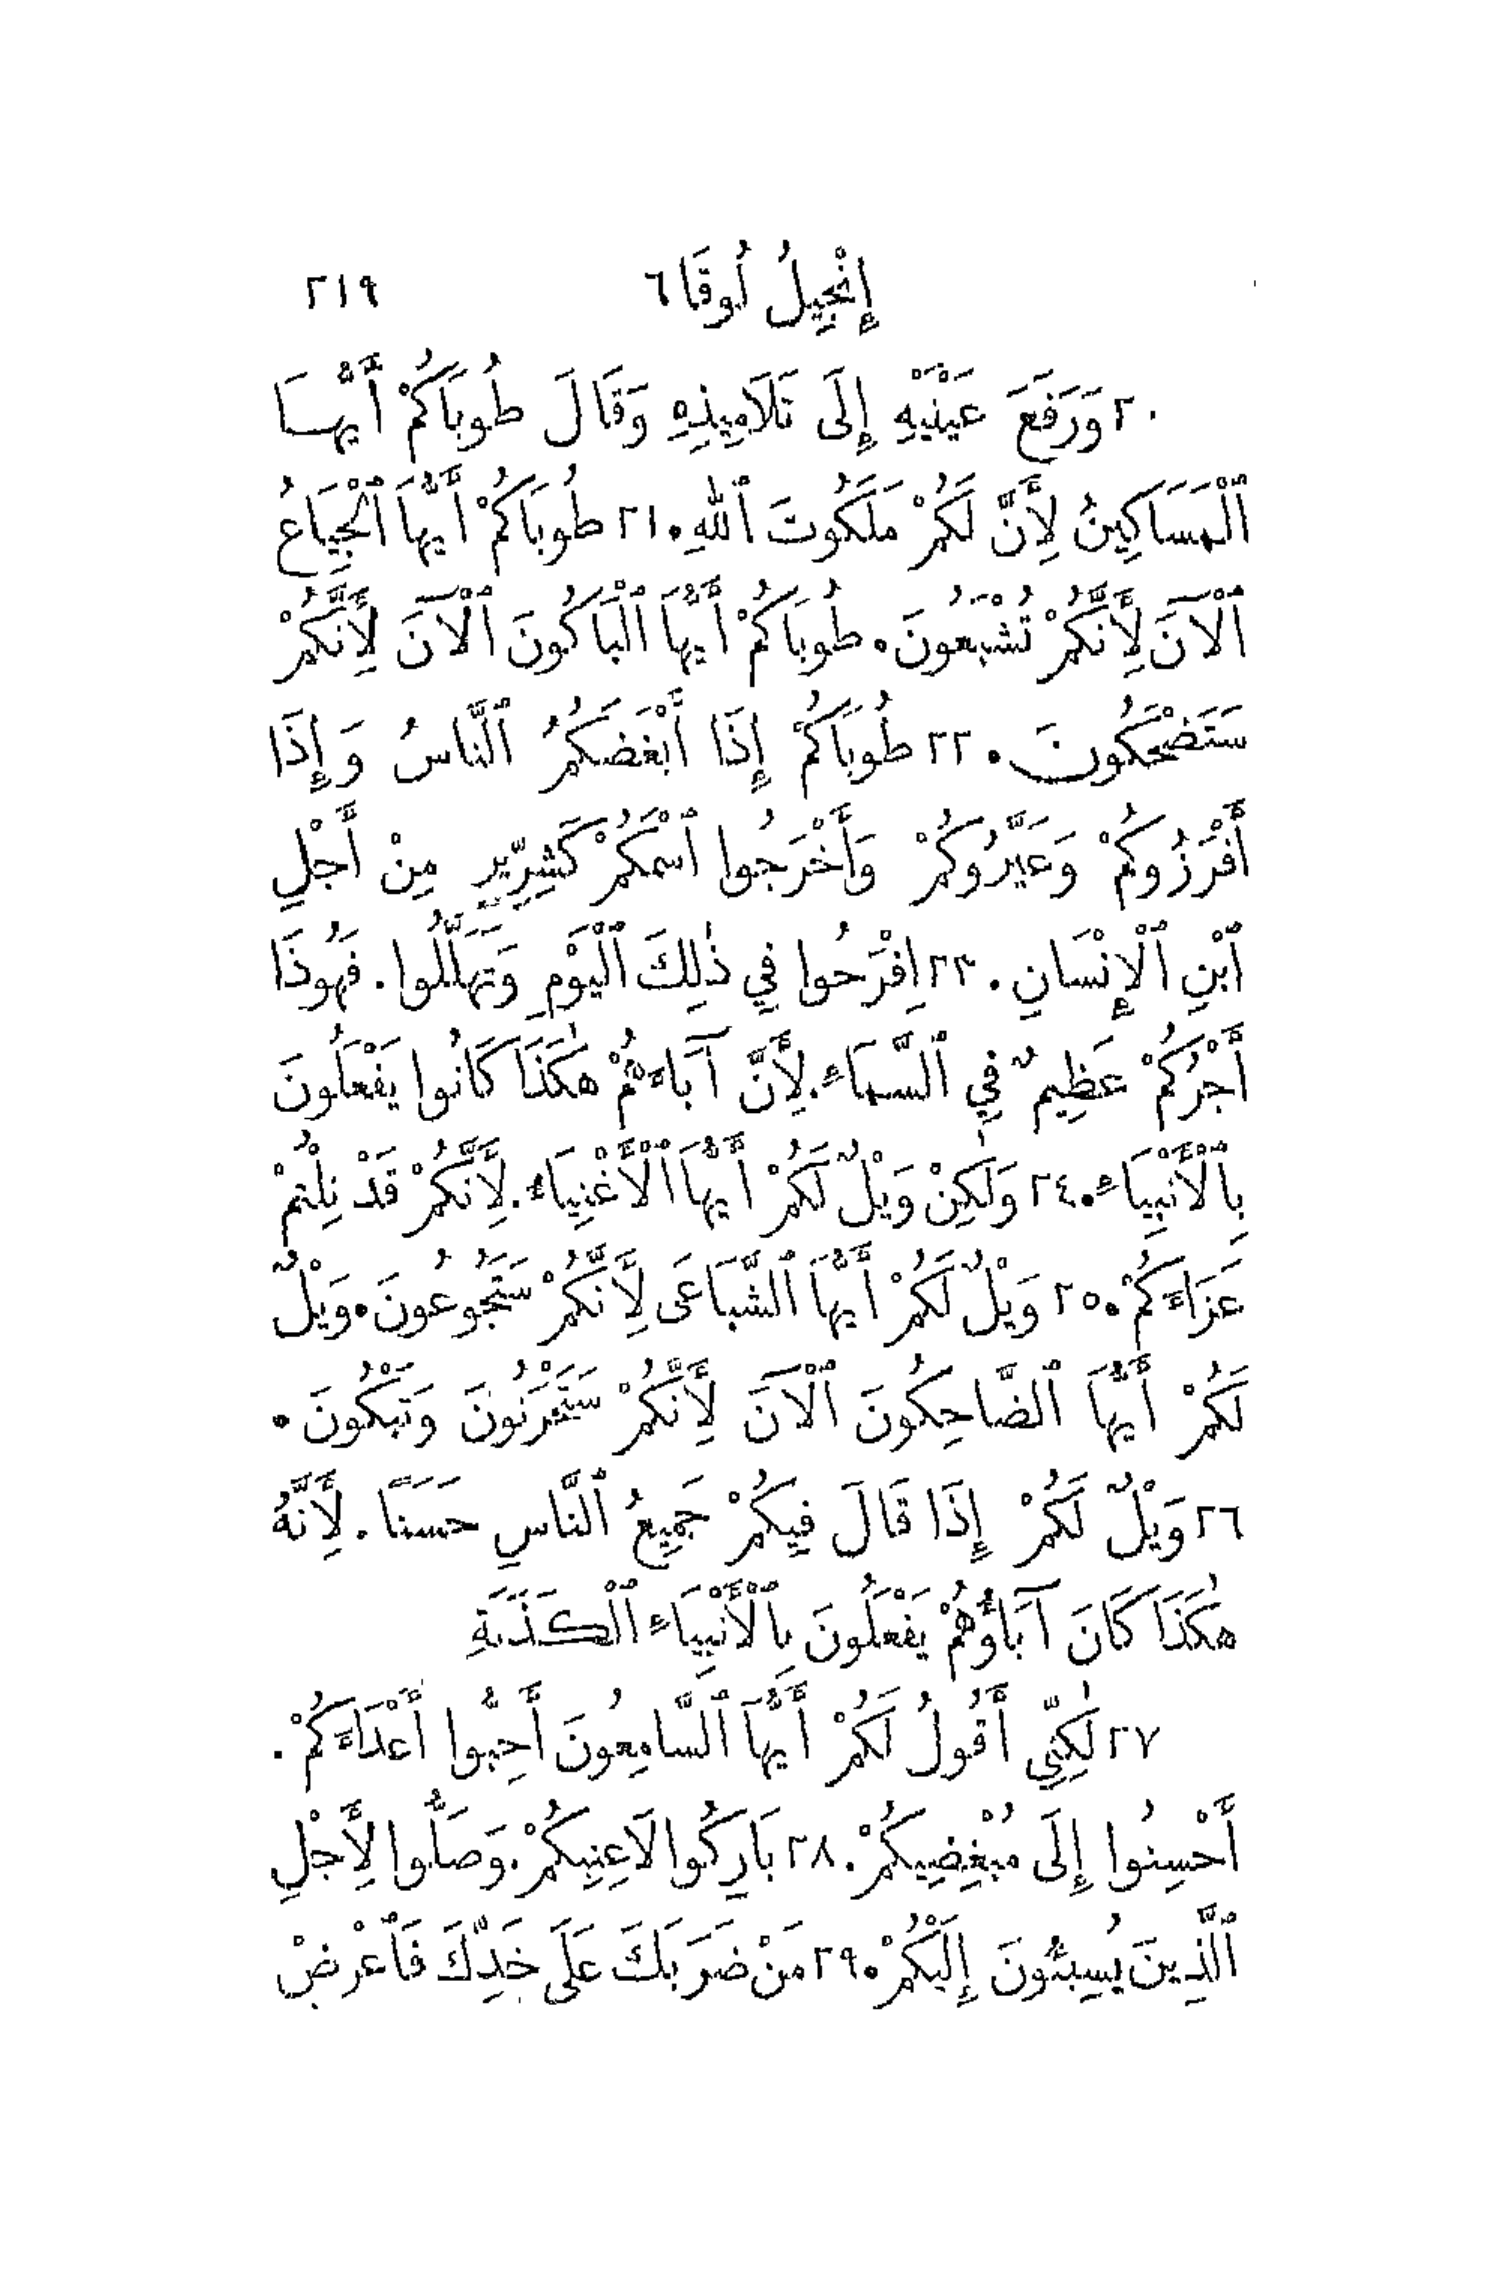 إِنْجِيلُ لُوقَا ٦ ٢١٩
٢٠ وَرَفَعَ عَيْنَيْهِ إِلَى تَلَامِيذِهِ وَقَالَ طُوبَاكُمْ أَيُّهَا
ٱلْمَسَاكِينُ لِأَنَّ لَكُمْ مَلَكُوتَ ٱللهِ. ٢١ طُوبَاكُمْ أَيُّهَا ٱلْجِيَاعُ
ٱلْآنَ لِأَنَّكُمْ تُشْبَعُونَ. طُوبَاكُمْ أَيُّهَا ٱلْبَاكُونَ ٱلْآنَ لِأَنَّكُمْ
سَتَضْحَكُونَ. ٢٢ طُوبَاكُمْ إِذَا أَبْغَضَكُمُ ٱلنَّاسُ وَإِذَا
أَفْرَزُوكُمْ وَعَيَّرُوكُمْ وَأَخْرَجُوا ٱسْمَكُمْ كَشِرِّيرٍ مِنْ أَجْلِ
ٱبْنِ ٱلْإِنْسَانِ. ٢٣ اِفْرَحُوا فِي ذٰلِكَ ٱلْيَوْمِ وَتَهَلَّلُوا. فَهُوَذَا
أَجْرُكُمْ عَظِيمٌ فِي ٱلسَّمَاءِ. لِأَنَّ آبَاءَهُمْ هٰكَذَا كَانُوا يَفْعَلُونَ
بِٱلْأَنْبِيَاءِ. ٢٤ وَلٰكِنْ وَيْلٌ لَكُمْ أَيُّهَا ٱلْأَغْنِيَاءُ. لِأَنَّكُمْ قَدْ نِلْتُمْ
عَزَاءَكُمْ. ٢٥ وَيْلٌ لَكُمْ أَيُّهَا ٱلشَّبَاعَى لِأَنَّكُمْ سَتَجُوعُونَ. وَيْلٌ
لَكُمْ أَيُّهَا ٱلضَّاحِكُونَ ٱلْآنَ لِأَنَّكُمْ سَتَحْزَنُونَ وَتَبْكُونَ.
٢٦ وَيْلٌ لَكُمْ إِذَا قَالَ فِيكُمْ جَمِيعُ ٱلنَّاسِ حَسَنًا. لِأَنَّهُ
هٰكَذَا كَانَ آبَاؤُهُمْ يَفْعَلُونَ بِٱلْأَنْبِيَاءِ ٱلْكَذَبَةِ
٢٧ لٰكِنِّي أَقُولُ لَكُمْ أَيُّهَا ٱلسَّامِعُونَ أَحِبُّوا أَعْدَاءَكُمْ.
أَحْسِنُوا إِلَى مُبْغِضِيكُمْ. ٢٨ بَارِكُوا لَاعِنِيكُمْ. وَصَلُّوا لِأَجْلِ
ٱلَّذِينَ يُسِيئُونَ إِلَيْكُمْ. ٢٩ مَنْ ضَرَبَكَ عَلَى خَدِّكَ فَٱعْرِضْ